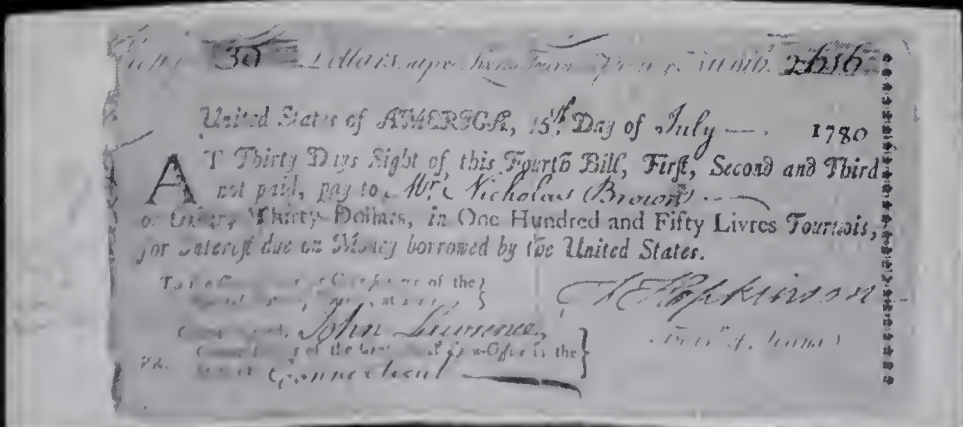 30 Dollars 2616
United States of AMERICA, 15th Day of July 1780
AT Thirty Days Sight of this Fourth Bill, First, Second and Third
not paid, pay to Mr. Nicholas Brown
or Order, Thirty Dollars, in One Hundred and Fifty Livres Tournois,
for Interest due on Money borrowed by the United States.
To the of the
F Hopkinson
John Lawrence,
Treasr. of Loans
of the the
Connecticut